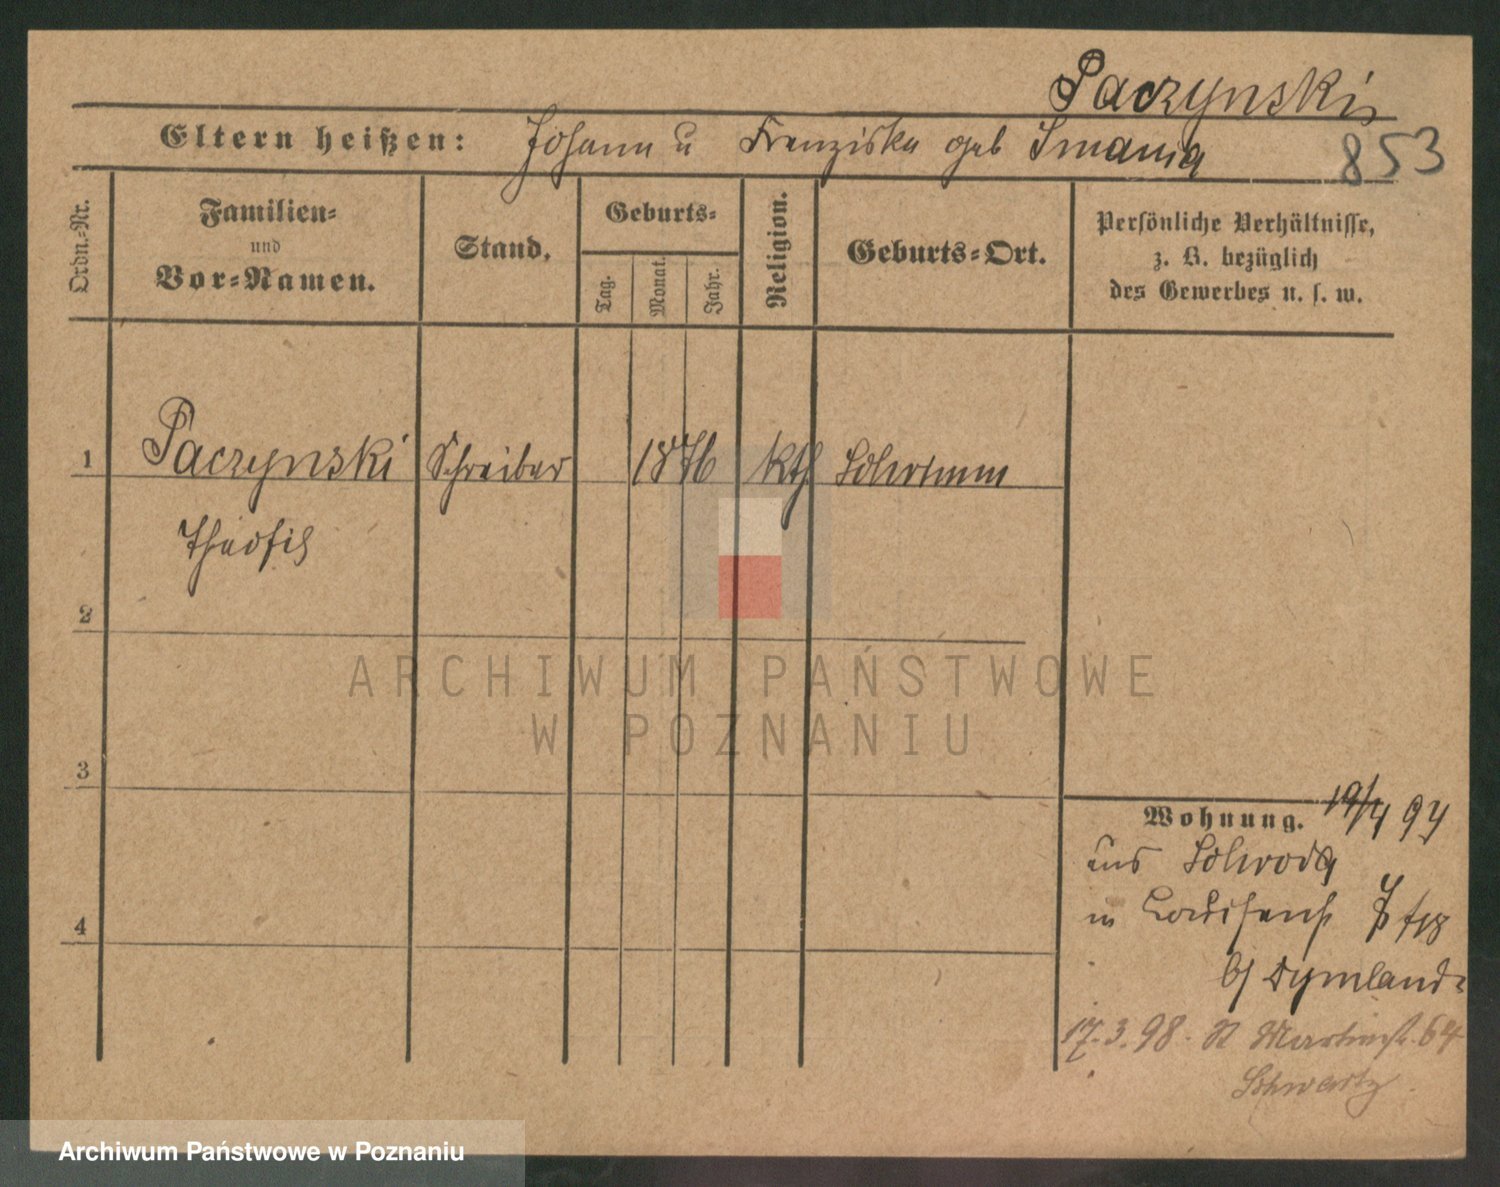 Paczynski
Eltern heißen: Johann u Franziska geb Smania
853
Ordn.-Nr.
Familien-
und
Vor-Namen.
Stand.
Geburts-
Tag.
Monat.
Jahr.
Religion.
Geburts-Ort.
Persönliche Verhältnisse,
z. B. bezüglich
des Gewerbes u. s. w.
1 Paczynski Schreiber 1876 kth Schrimm
Theofil
2
ARCHIWUM PAŃSTWOWE
W POZNANIU
3
Wohnung. 19/4 94
aus Schroda
in
b/ Dymland
17.3.98. St Martinstr. 64
Schwartz
4
Archiwum Państwowe w Poznaniu